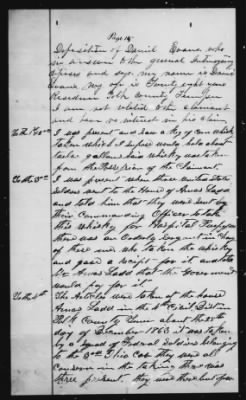 Page 14
Deposition of Daniel Evans who
in answer to the general Interrogatory
deposes and says. my name is Daniel
Evans My age is Twenty eight years
Residence Polk County Tenn
I am not related to the claimant
and have no interest in his claim
To the 2nd I was present and saw a keg of corn whisky
taken which I suppose would hold about
twelve gallons said whisky was taken
from the Possession of the Claimant
To the 3rd I was present when three United States
Soldiers went to the House of Amos Ladd
and told him that they were sent by
their Commanding Officer to take
this whisky for Hospital Purposes
there was an Orderly Sergeant in
of these men who took the whisky
and gave a receipt for it and told
Amos Ladd that the Government
would pay for it
To the 4th The Articles were taken at the house
Amos Ladd in the 6th Civil District
Polk County Tenn about the
day of December 1863 it was taken
by a squad of Federal Soldiers belonging
to the 3rd Ohio Cav they were all
concerned in the taking there was
three present. they were there but a few